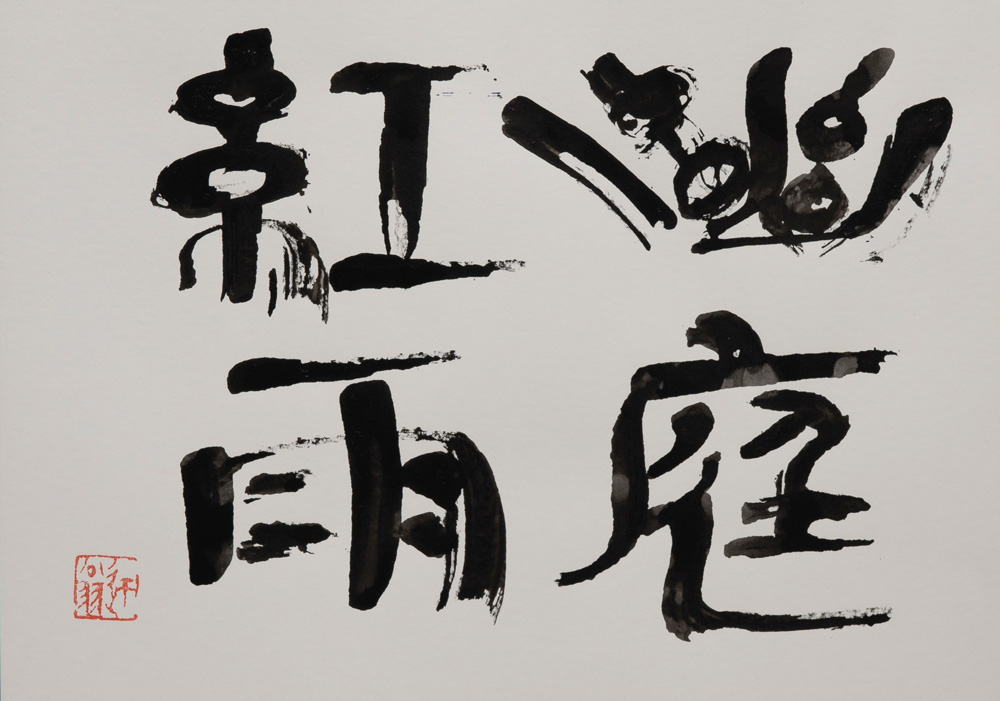 幽庭
紅雨